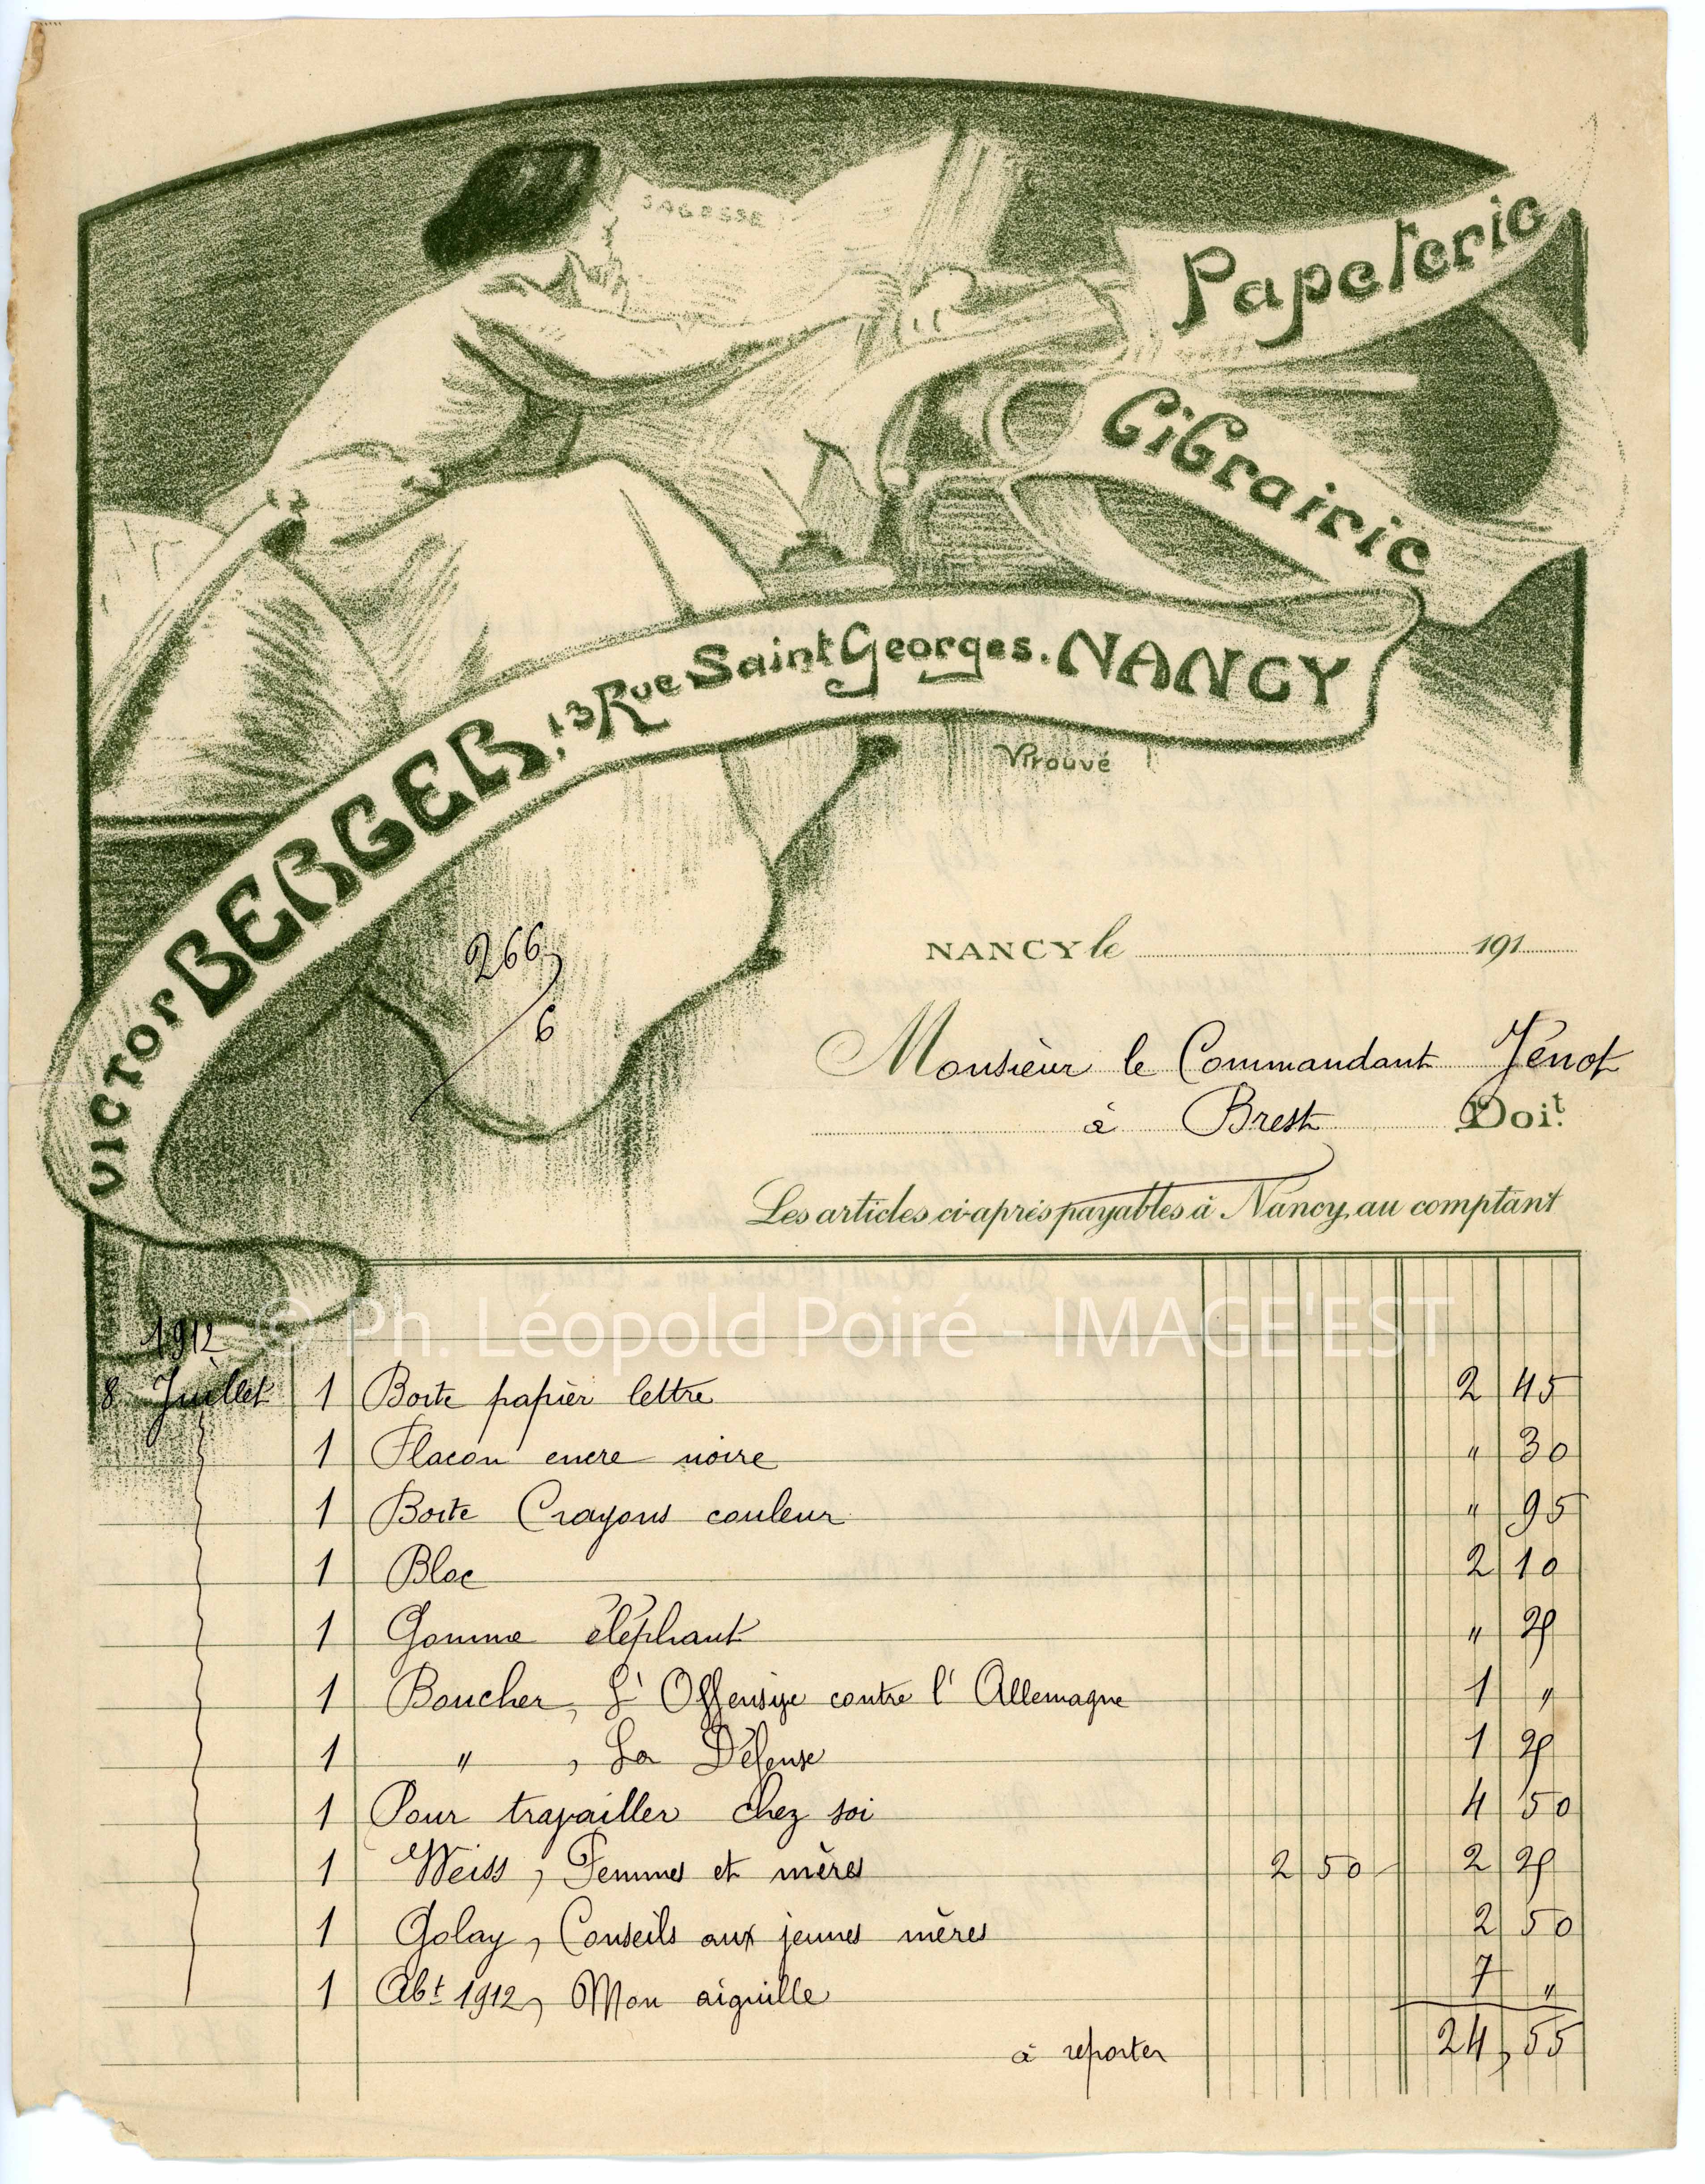 SAGESSE
Papeterie
Librairie
VICTOR BERGER, 13 Rue Saint Georges. NANCY
VProuvé
266
6
NANCY le 191
Monsieur le Commandant Jénot
à Brest Doit
Les articles ci-après payables à Nancy, au comptant
© Ph. Léopold Poiré - IMAGE'EST
1912
8 Juillet 1 Boite papier lettre 2 45
1 Flacon encre noire " 30
1 Boite Crayons couleur " 95
1 Bloc 2 10
1 Gomme éléphant " 25
1 Boucher, L'Offensive contre l'Allemagne 1 "
1 " , La Défense 1 25
1 Pour travailler chez soi 4 50
1 Weiss, Femmes et mères 2 50 2 25
1 Golay, Conseils aux jeunes mères 2 50
1 Abt 1912, Mon aiguille 7 "
à reporter 24,55